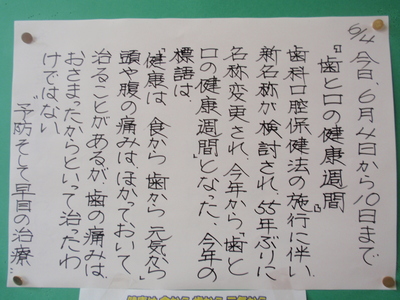 6/4 今日、6月4日から10日まで
『歯と口の健康週間』
歯科口腔保健法の施行に伴い
新名称が検討され、55年ぶりに
名称変更され、今年から「歯と
口の健康週間」となった。今年の
標語は、
「健康は 食から 歯から 元気から」
頭や腹の痛みはほかっておいて
治ることがあるが、歯の痛みは、
おさまったからといって治ったわ
けではない。
"予防そして早目の治療"
健康は 食から 歯から 元気から